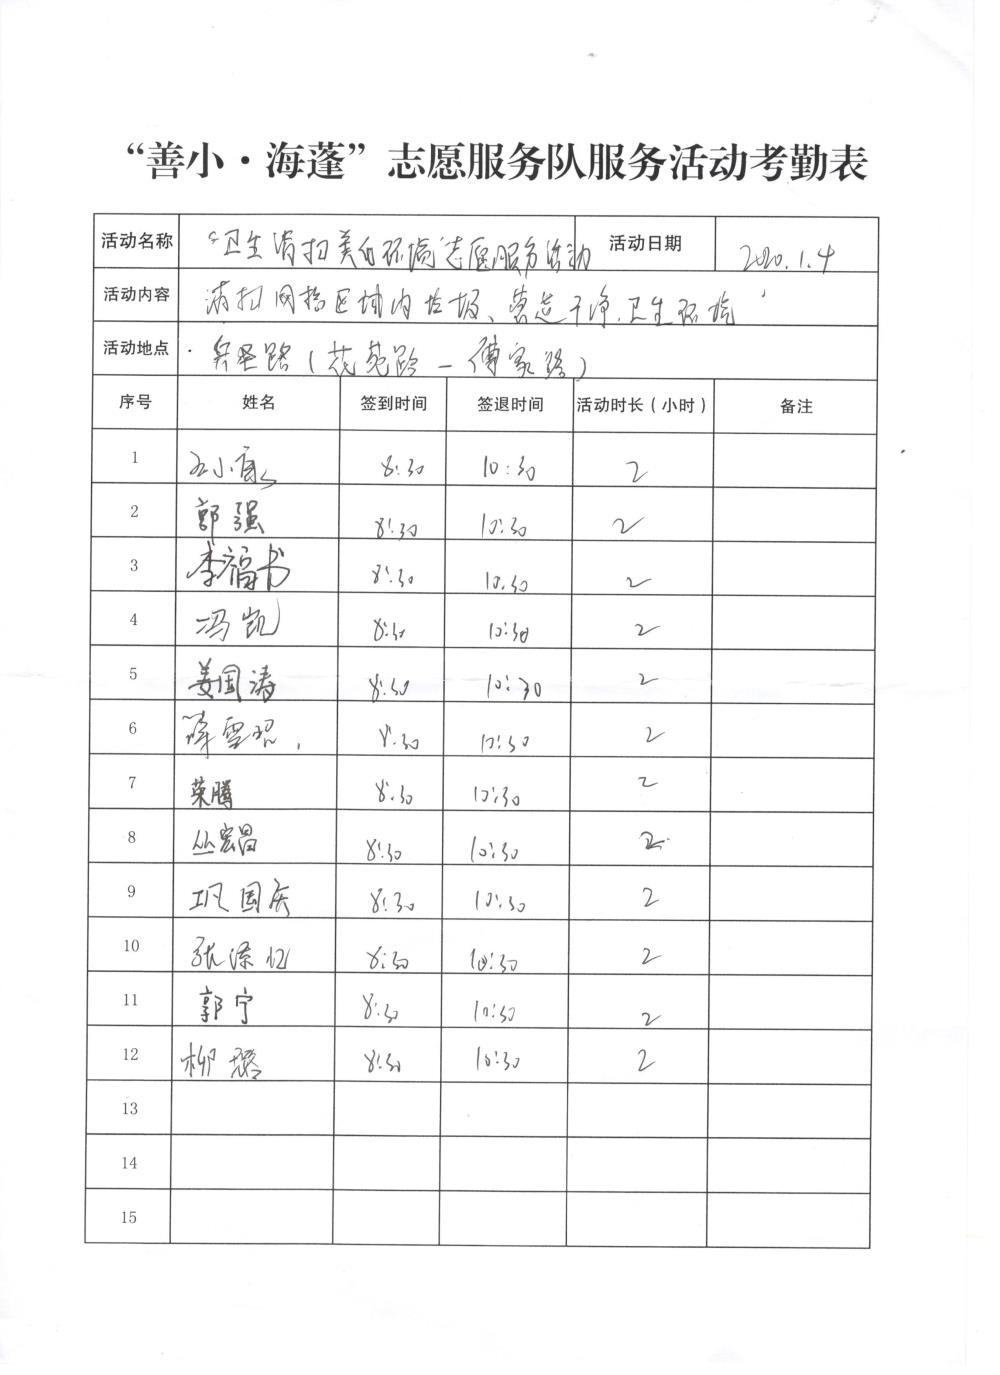 “善小·海蓬”志愿服务队服务活动考勤表
活动名称 “卫生清扫美化环境”志愿服务活动 活动日期 2020.1.4
活动内容 清扫网格区域内垃圾、营造干净、卫生环境
活动地点 兵圣路（花苑路－傅家路）
序号 姓名 签到时间 签退时间 活动时长（小时） 备注
1 8:30 10:30 2
2 郭强 8:30 10:30 2
3 李福书 8:30 10:30 2
4 冯凯 8:30 10:30 2
5 姜国涛 8:30 10:30 2
6 8:30 10:30 2
7 荣腾 8:30 10:30 2
8 丛宏昌 8:30 10:30 2
9 巩国庆 8:30 10:30 2
10 8:30 10:30 2
11 郭宁 8:30 10:30 2
12 柳璐 8:30 10:30 2
13
14
15